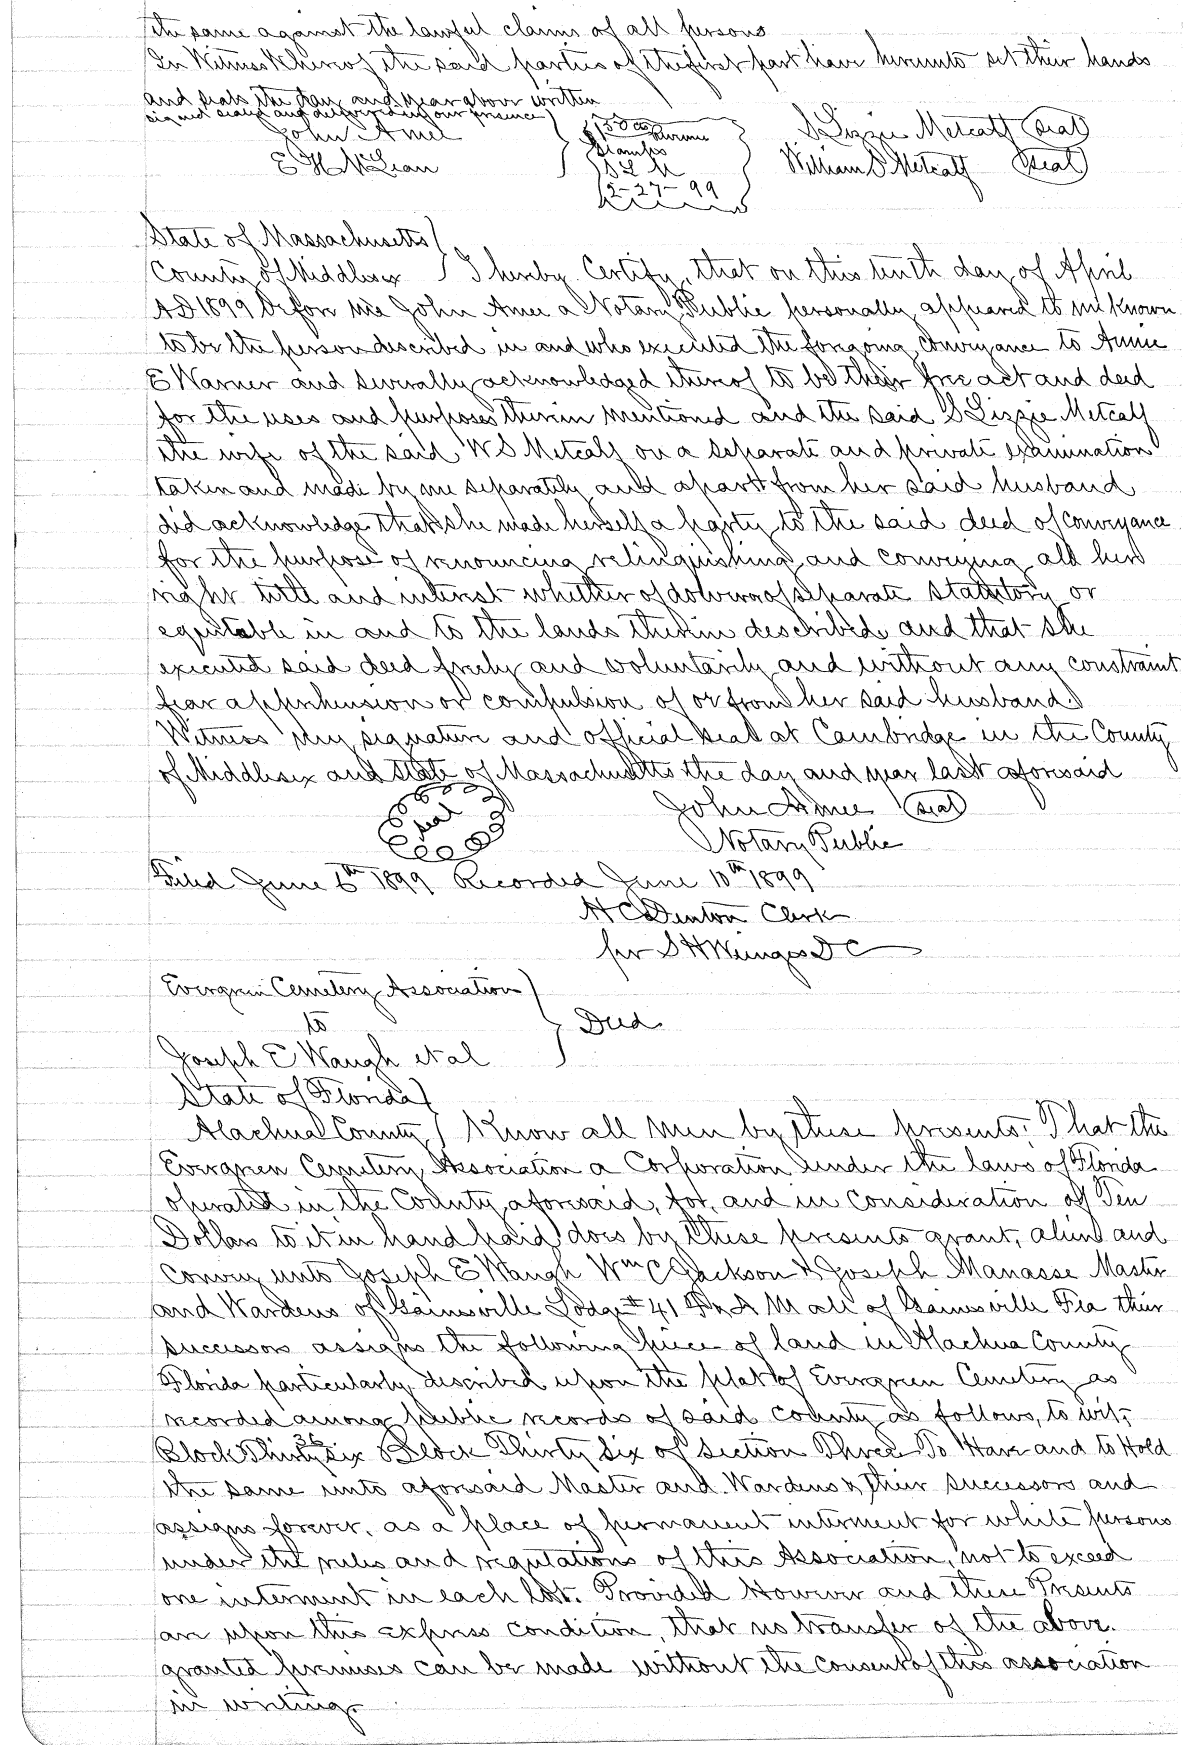 the same against the lawful claims of all persons
In Witness Whereof the said parties of the first part have hereunto set their hands
and seals the day and year above written
signed sealed and delivered in our presence
John Amee
E H McLean
$1 50 cts Revenue
Stamps
S L M
12-27-99
S Lizzie Metcalf (seal)
William S Metcalf (seal)
State of Massachusetts
County of Middlesex I hereby Certify, that on this tenth day of April
A D 1899 before me John Amee a Notary Public personally appeared to me known
to be the person described in and who executed the foregoing conveyance to Annie
E Warner and severally acknowledged thereof to be their free act and deed
for the uses and purposes therein mentioned and the said S Lizzie Metcalf
the wife of the said W S Metcalf on a separate and private examination
taken and made by me separately and apart from her said husband
did acknowledge that she made herself a party to the said deed of conveyance
for the purpose of renouncing relinquishing and conveying all her
right title and interest whether of dower or of separate statutory or
equitable in and to the lands therein described and that she
executed said deed freely and voluntarily and without any constraint
fear apprehension or compulsion of or from her said husband.
Witness my signature and official seal at Cambridge in the County
of Middlesex and State of Massachusetts the day and year last aforesaid
seal
John Amee (seal)
Notary Public
Filed June 6th 1899 Recorded June 10th 1899
H C Denton Clerk
per S H Wienges D C
Evergreen Cemetery Association
to
Deed
Joseph E Waugh et al
State of Florida
Alachua County Know all Men by these presents: That the
Evergreen Cemetery Association a Corporation under the laws of Florida
operated in the County aforesaid, for, and in consideration of Ten
Dollars to it in hand paid does by these presents grant, alien and
convey unto Joseph E Waugh Wm C Jackson & Joseph Manasse Master
and Wardens of Gainesville Lodge # 41 F & A M all of Gainesville Fla their
successors assigns the following piece of land in Alachua County
Florida particularly described upon the plat of Evergreen Cemetery as
recorded among public records of said county as follows, to wit,
36
Block Thirty Six Block Thirty Six of Section Three To Have and to Hold
the same unto aforesaid Master and Wardens & their successors and
assigns forever, as a place of permanent interment for white persons
under the rules and regulations of this Association, not to exceed
one interment in each lot. Provided However and these Presents
are upon this express condition, that no transfer of the above
granted premises can be made without the consent of this association
in writing.